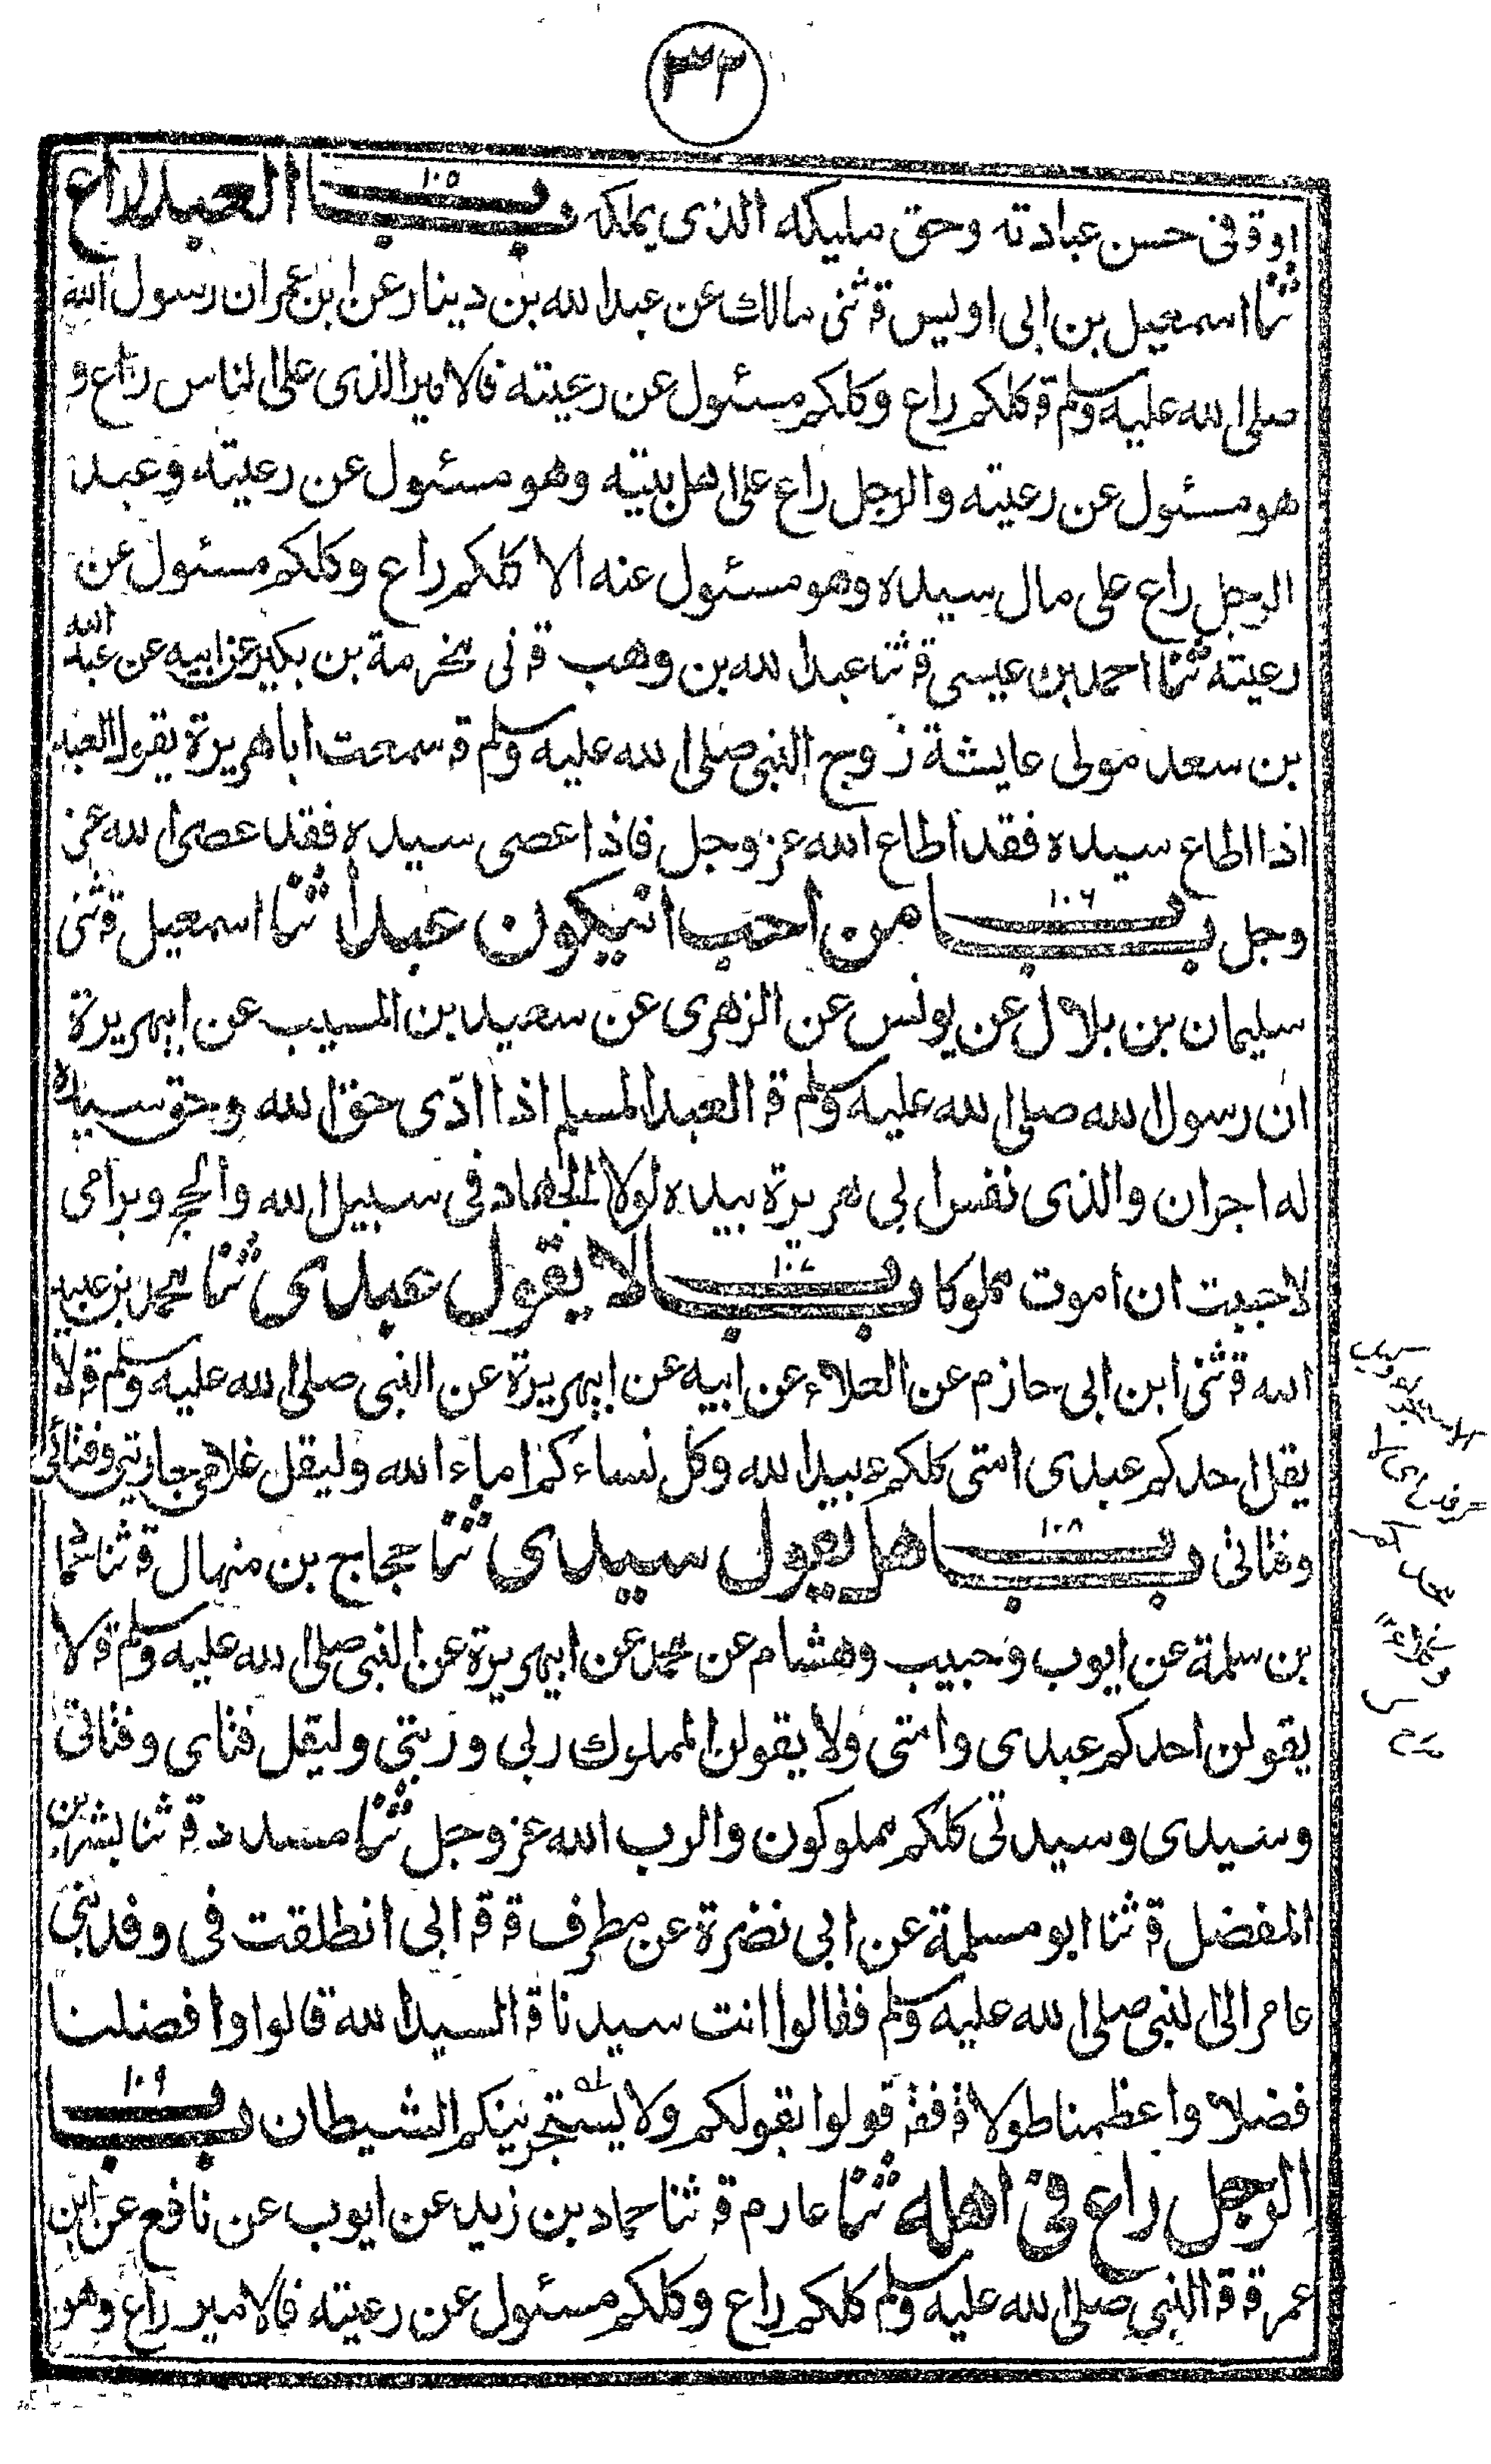 ٣٣
اوقى حسن عبادته وحق مليكه الذى يملكه باب ١٠٥ العبد راع
ثنا اسمعيل بن ابى اويس قثنى مالك عن عبد الله بن دينار عن ابن عمر ان رسول الله
صلى الله عليه وسلم ق كلكم راع وكلكم مسئول عن رعيته فالامير الذى على الناس راع و
هو مسئول عن رعيته والرجل راع على اهل بيته وهو مسئول عن رعيته وعبد
الرجل راع على مال سيده وهو مسئول عنه الا كلكم راع وكلكم مسئول عن
رعيته ثنا احمد بن عيسى ق ثنا عبد الله بن وهب ق نى مخرمة بن بكير عن ابيه عن عبد الله
بن سعد مولى عايشة زوج النبى صلى الله عليه وسلم ق سمعت اباهريرة يقول العبد
اذا اطاع سيده فقد اطاع الله عز وجل فاذا عصى سيده فقد عصى الله عز
وجل باب ١٠٦ من احب انيكون عبدا ثنا اسمعيل ق ثنى
سليمان بن بلال عن يونس عن الزهرى عن سعيد بن المسيب عن ابيهريرة
ان رسول الله صلى الله عليه وسلم ق العبد المسلم اذا ادّى حق الله وحق سيده
له اجران والذى نفس ابى هريرة بيده لولا الجهاد فى سبيل الله والحج وبرامى
لاحببت ان اموت مملوكا باب ١٠٧ لا يقول عبدى ثنا محمد بن عبيد
الله ق ثنى ابن ابى حازم عن العلاء عن ابيه عن ابيهريرة عن النبى صلى الله عليه وسلم ق لا
يقل احدكم عبدى امتى كلكم عبيد الله وكل نساءكم اماء الله وليقل غلامى جاريتى وفتائى
وفتاتى باب ١٠٨ هل يقول سيدى ثنا حجاج بن منهال ق ثنا حماد
بن سلمة عن ايوب وحبيب وهشام عن محمد عن ابيهريرة عن النبى صلى الله عليه وسلم ق لا
يقولن احدكم عبدى وامتى ولا يقولن المملوك ربى وربتى وليقل فتاى وفتاتى
وسيدى وسيدتى كلكم مملوكون والرب الله عز وجل ثنا مسدد ق ثنا بشر بن
المفضل ق ثنا ابو مسلمة عن ابى نضرة عن مطرف ق ق ابى انطلقت فى وفد بنى
عامر الى النبى صلى الله عليه وسلم فقالوا انت سيدنا ق السيد الله قالوا وافضلنا
فضلا واعظمنا طولا ق فق قولوا بقولكم ولا يستجرينكم الشيطان باب ١٠٩
الرجل راع فى اهله ثنا عارم ق ثنا حماد بن زيد عن ايوب عن نافع عن ابن
عمر ق ق النبى صلى الله عليه وسلم كلكم راع وكلكم مسئول عن رعيته فالامير راع وهو